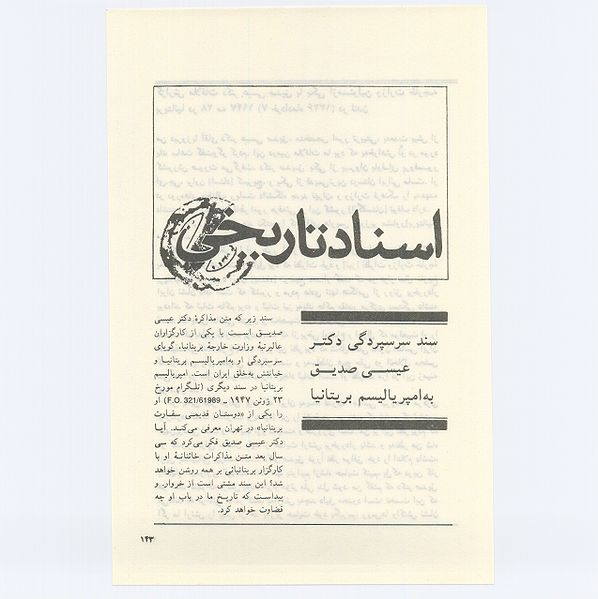 اسناد تاریخی
سند سرسپردگی دکتر
عیسی صدیق
به‌امپریالیسم بریتانیا
سند زیر که متن مذاکرهٔ دکتر عیسی
صدیق است با یکی از کارگزاران
عالیرتبهٔ وزارت خارجهٔ بریتانیا، گویای
سرسپردگی او به‌امپریالیسم بریتانیا و
خیانتش به‌خلق ایران است. امپریالیسم
بریتانیا در سند دیگری (تلگرام مورخ
۲۳ ژوئن ۱۹۴۷ ـ F.O. 321/61989) او
را یکی از «دوستان قدیمی سفارت
بریتانیا» در تهران معرفی می‌کند. آیا
دکتر عیسی صدیق فکر می‌کرد که سی
سال بعد متن مذاکرات خائنانهٔ او با
کارگزار بریتانیائی بر همه روشن خواهد
شد؟ این سند مشتی است از خروار، و
پیداست که تاریخ ما در باب او چه
قضاوت خواهد کرد.
۱۴۳